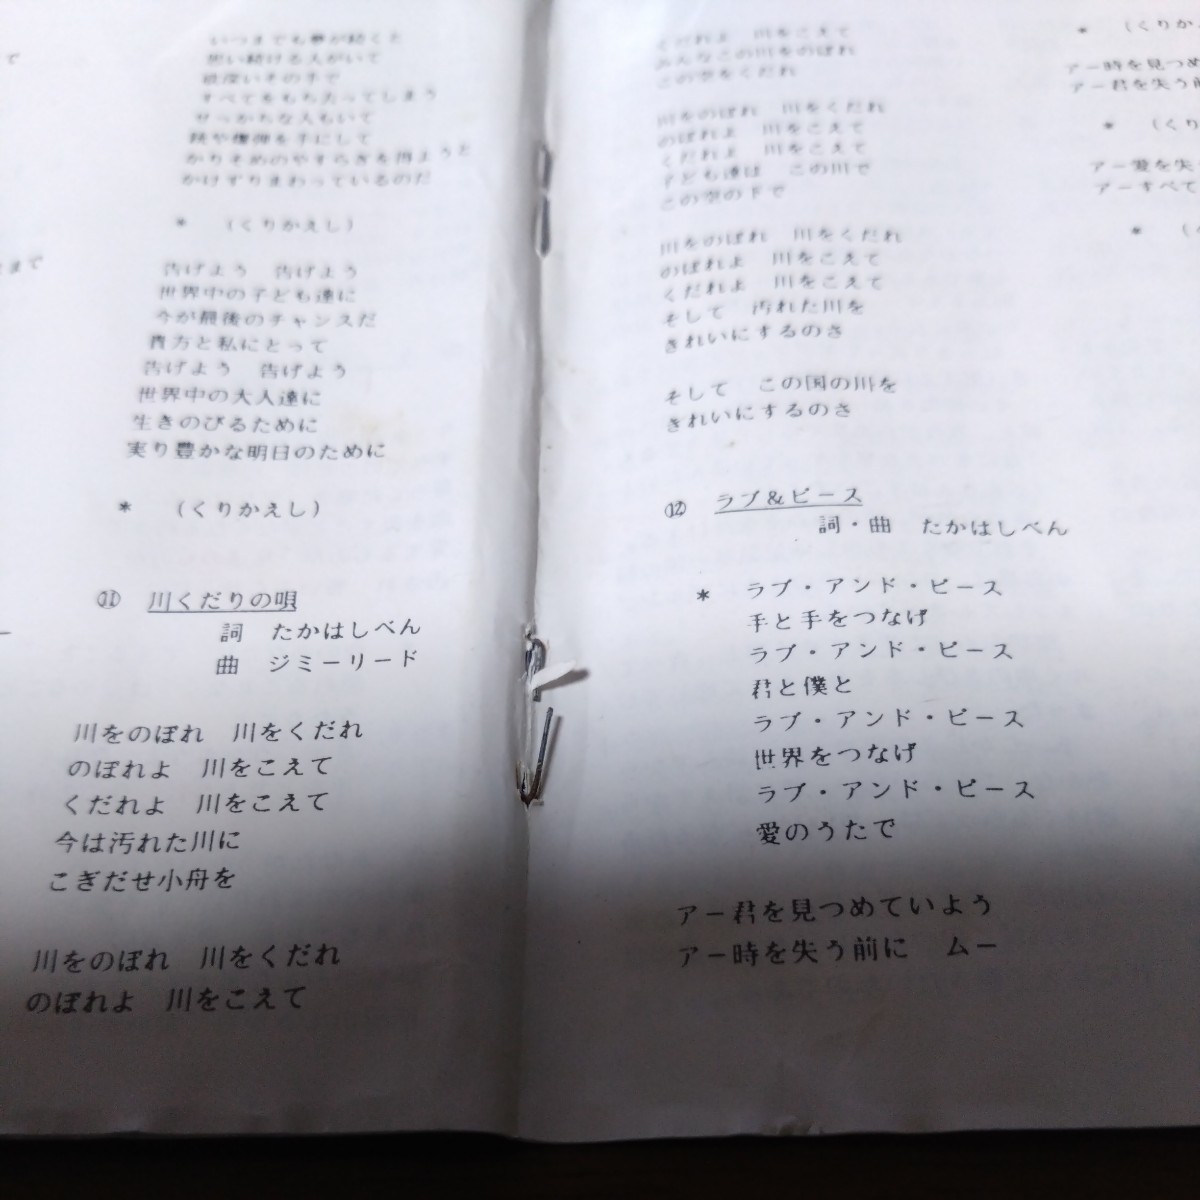 いつまでも夢が続くと
思い続ける人がいて
欲深いその手で
すべてをもち去ってしまう
せっかちな人もいて
銃や爆弾を手にして
かりそめのやすらぎを得ようと
かけずりまわっているのだ
* (くりかえし)
告げよう 告げよう
世界中の子ども達に
今が最後のチャンスだ
貴方と私にとって
告げよう 告げよう
世界中の大人達に
生きのびるために
実り豊かな明日のために
* (くりかえし)
⑪ 川くだりの唄
詞 たかはしべん
曲 ジミーリード
川をのぼれ 川をくだれ
のぼれよ 川をこえて
くだれよ 川をこえて
今は汚れた川に
こぎだせ小舟を
川をのぼれ 川をくだれ
のぼれよ 川をこえて
くだれよ 川をこえて
みんなこの川をのぼれ
この空をくだれ
川をのぼれ 川をくだれ
のぼれよ 川をこえて
くだれよ 川をこえて
子ども達は この川で
この空の下で
川をのぼれ 川をくだれ
のぼれよ 川をこえて
くだれよ 川をこえて
そして 汚れた川を
きれいにするのさ
そして この国の川を
きれいにするのさ
⑫ ラブ&ピース
詞・曲 たかはしべん
* ラブ・アンド・ピース
手と手をつなげ
ラブ・アンド・ピース
君と僕と
ラブ・アンド・ピース
世界をつなげ
ラブ・アンド・ピース
愛のうたで
アー君を見つめていよう
アー時を失う前に ムー
* (くりか
アー時を見つめ
アー君を失う前
* (くり
アー愛を失
アーすべて
* (